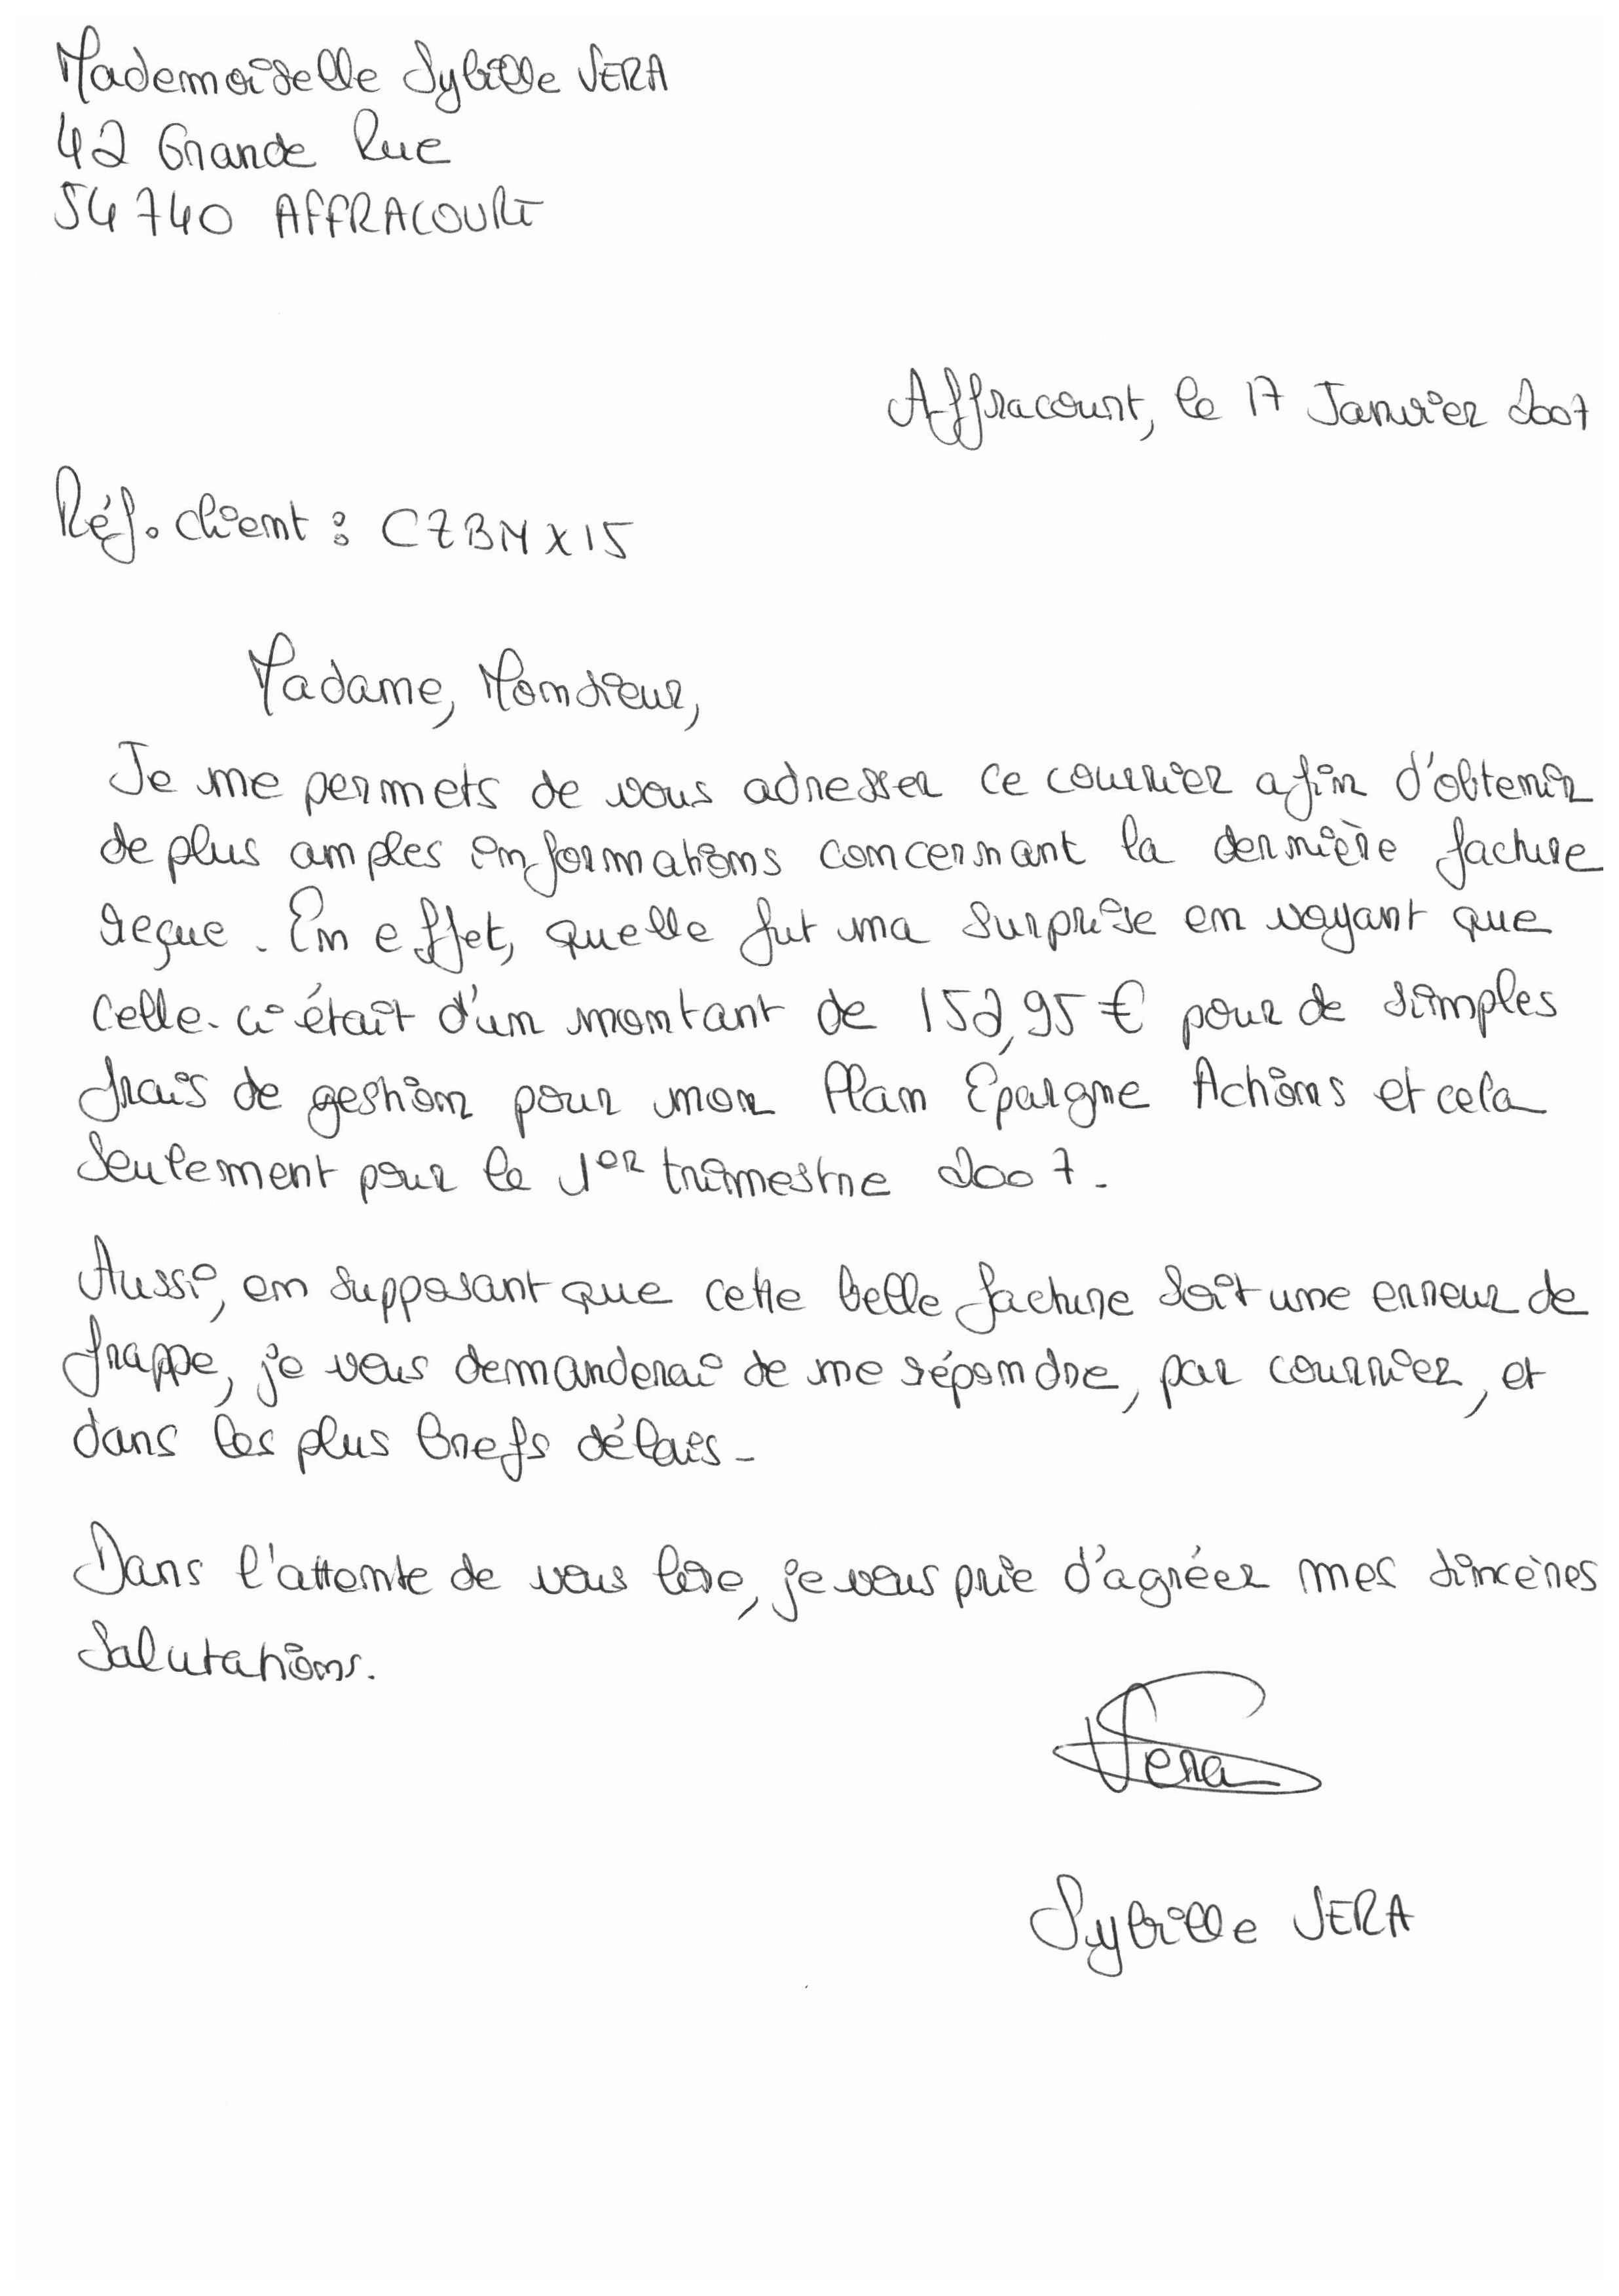 Mademoiselle Sybille VERA
42 Grande Rue
54740 AFFRACOURT
Affracourt, le 17 Janvier 2007
Réf. client : CZBMX15
Madame, Monsieur,
Je me permets de vous adresser ce courrier afin d'obtenir
de plus amples informations concernant la dernière facture
reçue. En effet, quelle fut ma surprise en voyant que
celle-ci était d'un montant de 152,95 € pour de simples
frais de gestion pour mon Plan Epargne Actions et cela
seulement pour le 1er trimestre 2007.
Aussi, en supposant que cette belle facture soit une erreur de
frappe, je vous demanderai de me répondre, par courrier, et
dans les plus brefs délais.
Dans l'attente de vous lire, je vous prie d'agréer mes sincères
salutations.
Vera
Sybille VERA